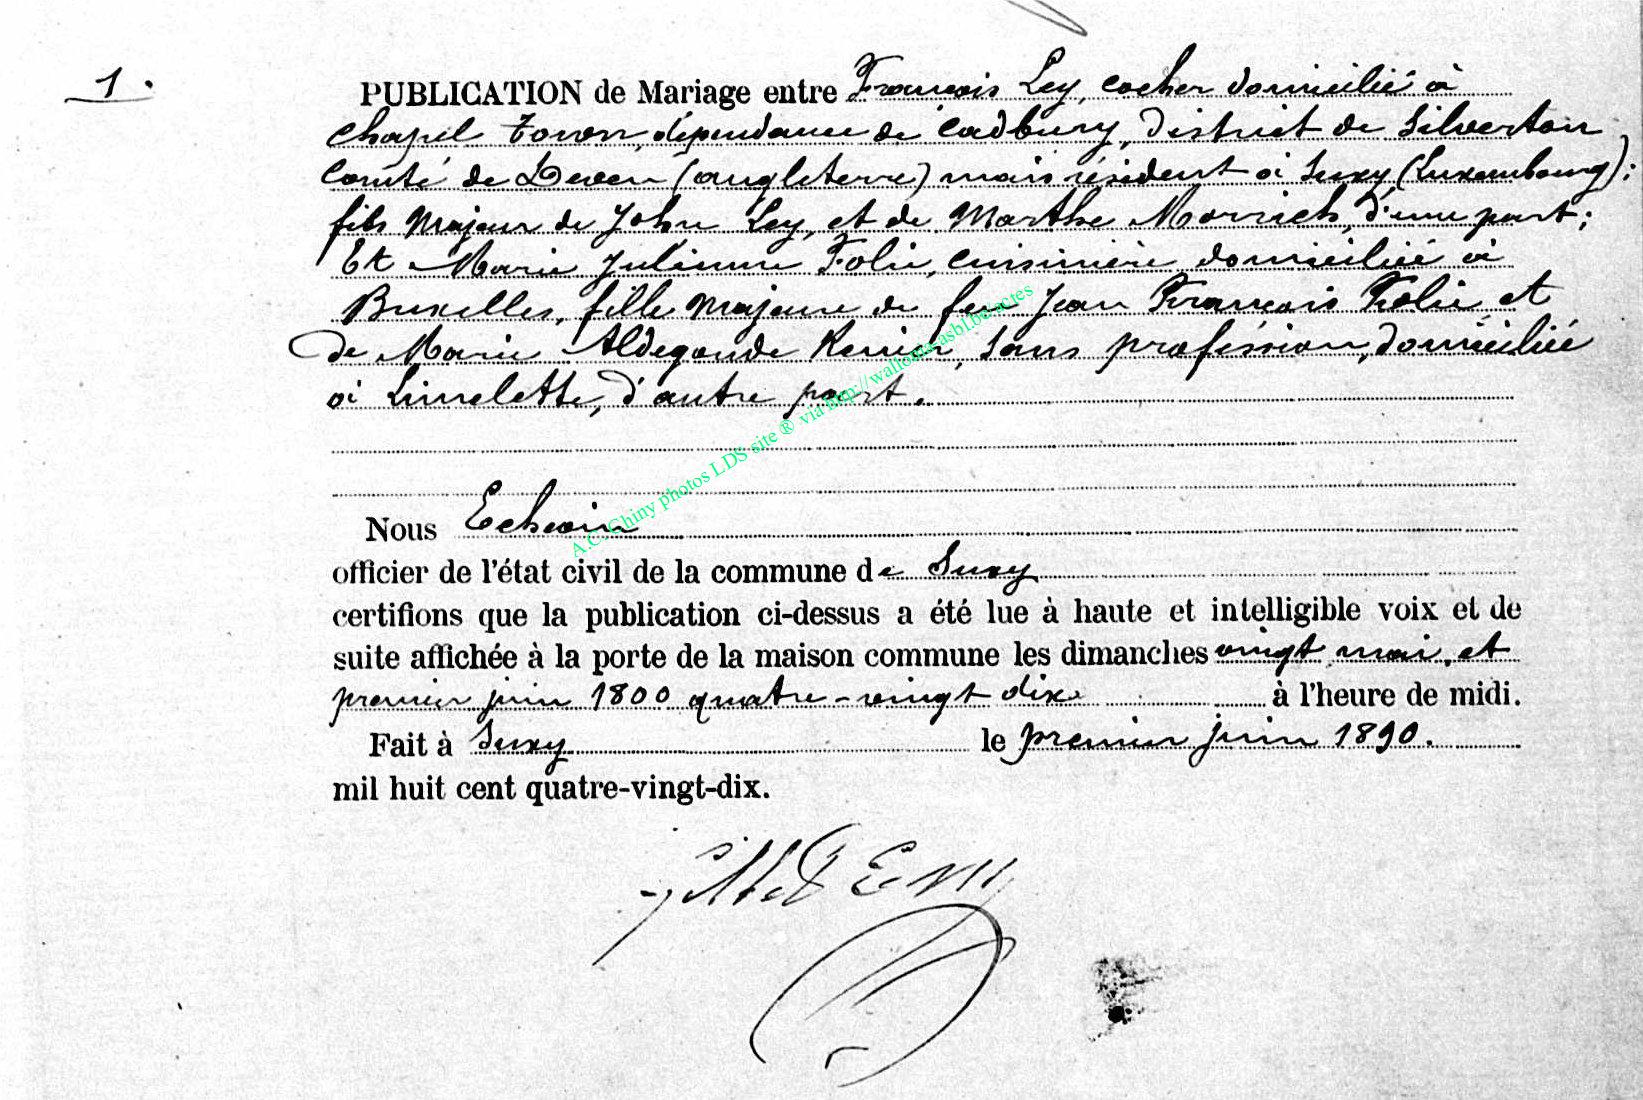 1.
PUBLICATION de Mariage entre François Ley, cocher domicilié à
Chapel Town, dépendance de Cadbury, District de Silverton
Comté de Deven (angleterre) mais résident à Suxy (Luxembourg);
fils Majeur de John Ley, et de Marthe Morrich, d'une part;
Et Marie Julienne Folie, cuisinière domiciliée à
Bruxelles, fille Majeure de feu Jean François Folie et
de Marie Aldegonde Renier, sans proféssion, domiciliée
à Limelette, d'autre part.
Nous Echevin
officier de l'état civil de la commune de Suxy
certifions que la publication ci-dessus a été lue à haute et intelligible voix et de
suite affichée à la porte de la maison commune les dimanches vingt mai, et
premier juin 1800 quatre-vingt dix à l'heure de midi.
Fait à Suxy le premier juin 1890.
mil huit cent quatre-vingt-dix.
A.C. Chiny photos LDS site ® via http://wallonia-asbl.be/actes